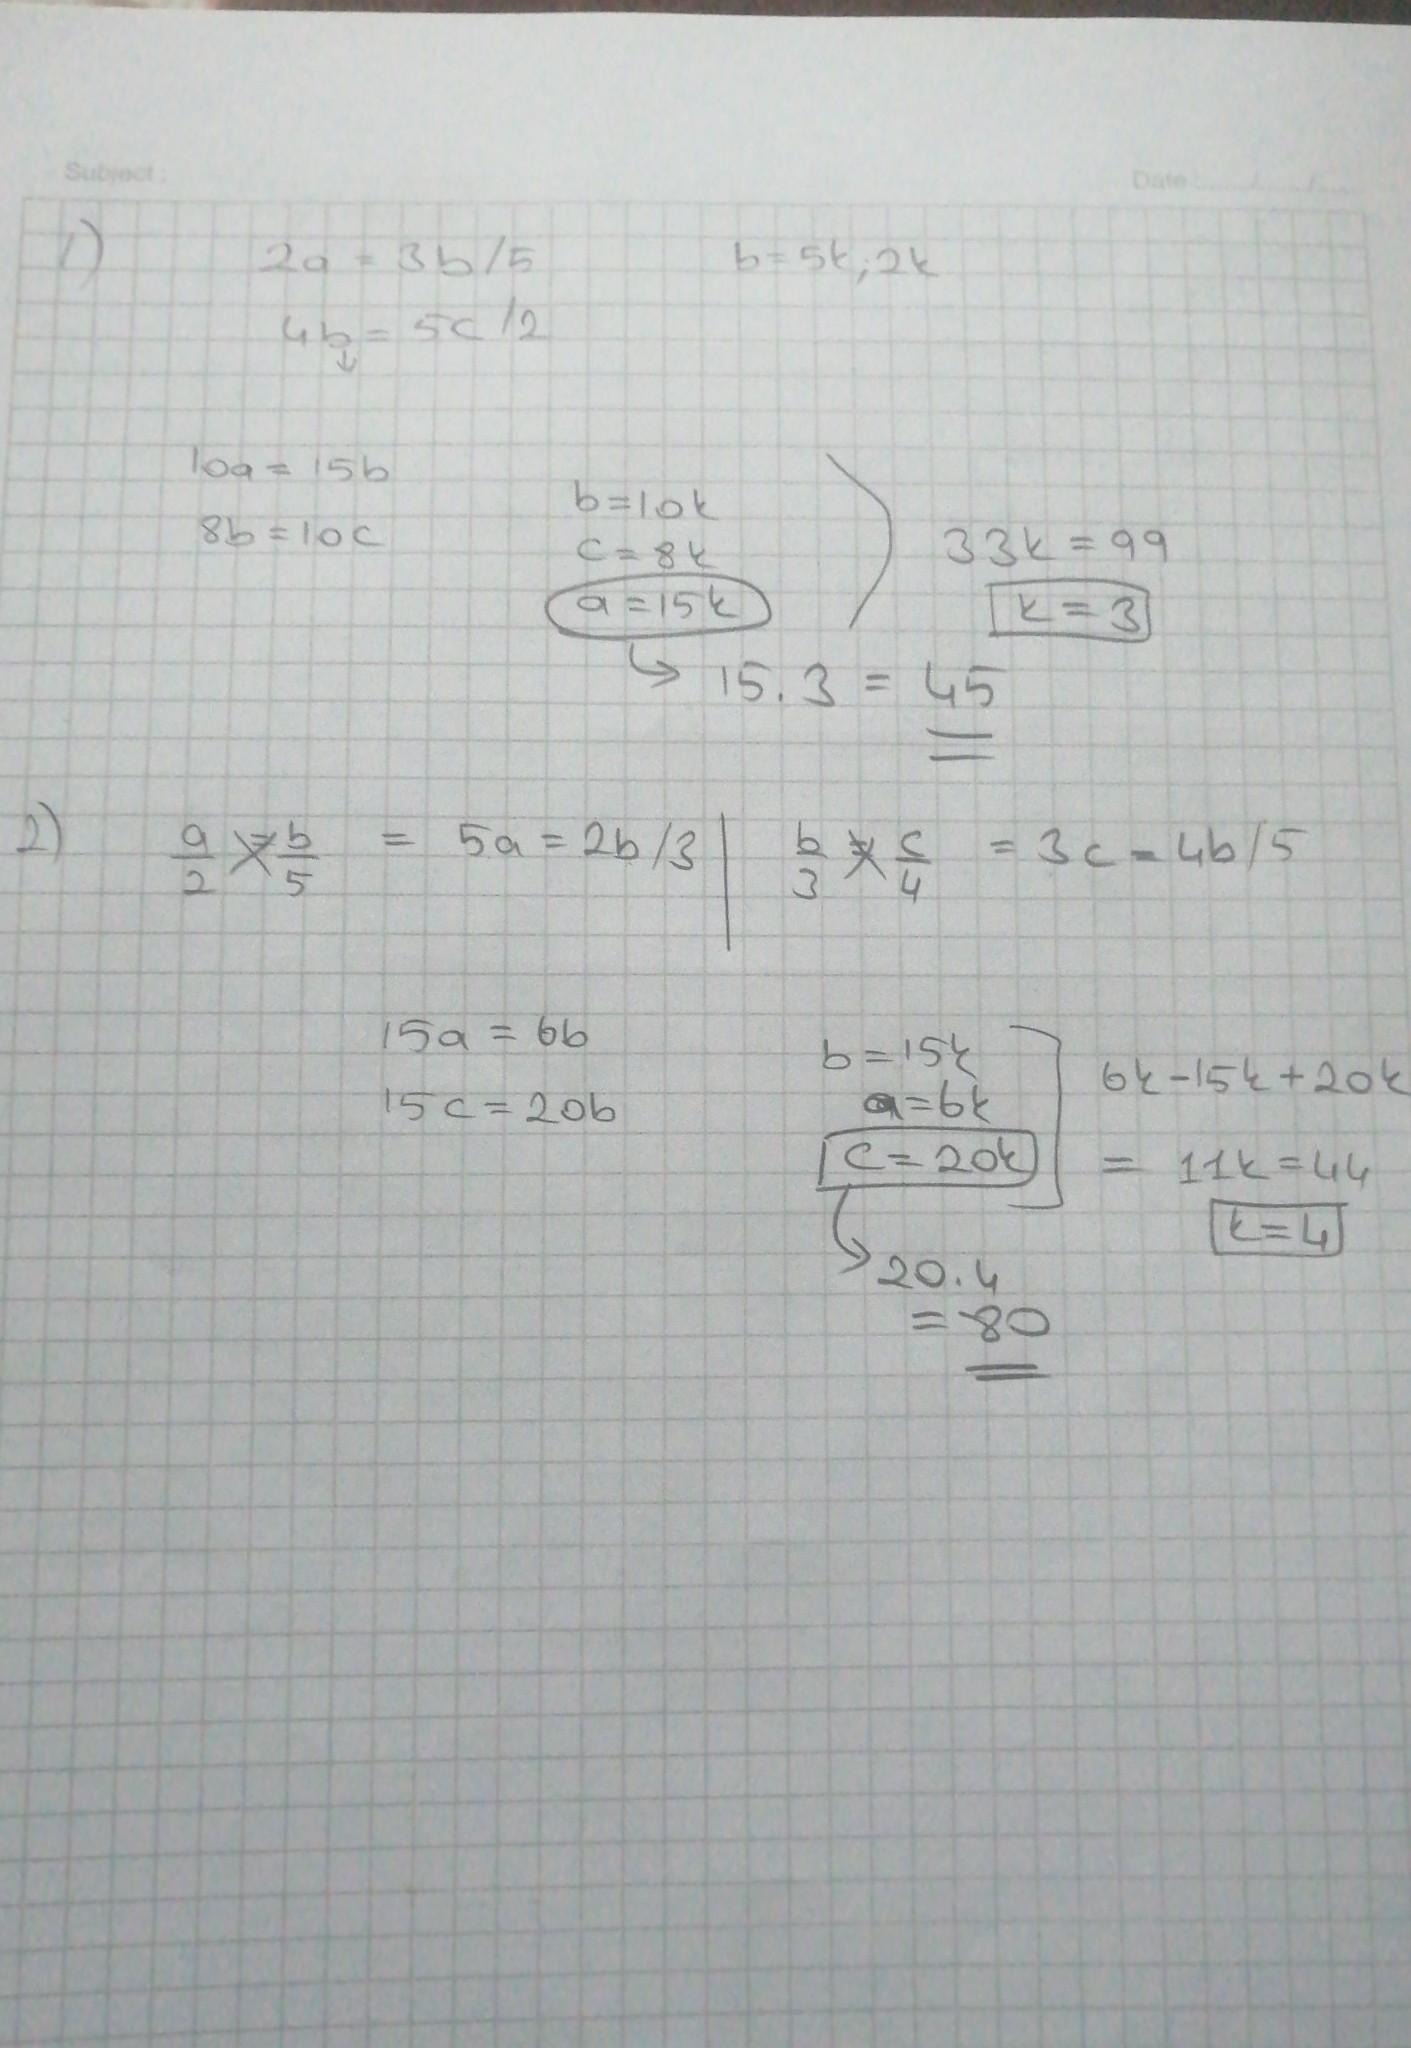 Subject:
Date:
1) 2a = 3b /5 b = 5k, 2k
4b = 5c /2
10a = 15b
8b = 10c
b = 10k
c = 8k
a = 15k
33k = 99
k = 3
15.3 = 45
2) a/2 = b/5 = 5a = 2b /3 | b/3 = c/4 = 3c = 4b /5
15a = 6b
15c = 20b
b = 15k
a = 6k
c = 20k
6k - 15k + 20k
= 11k = 44
k = 4
20.4
= 80